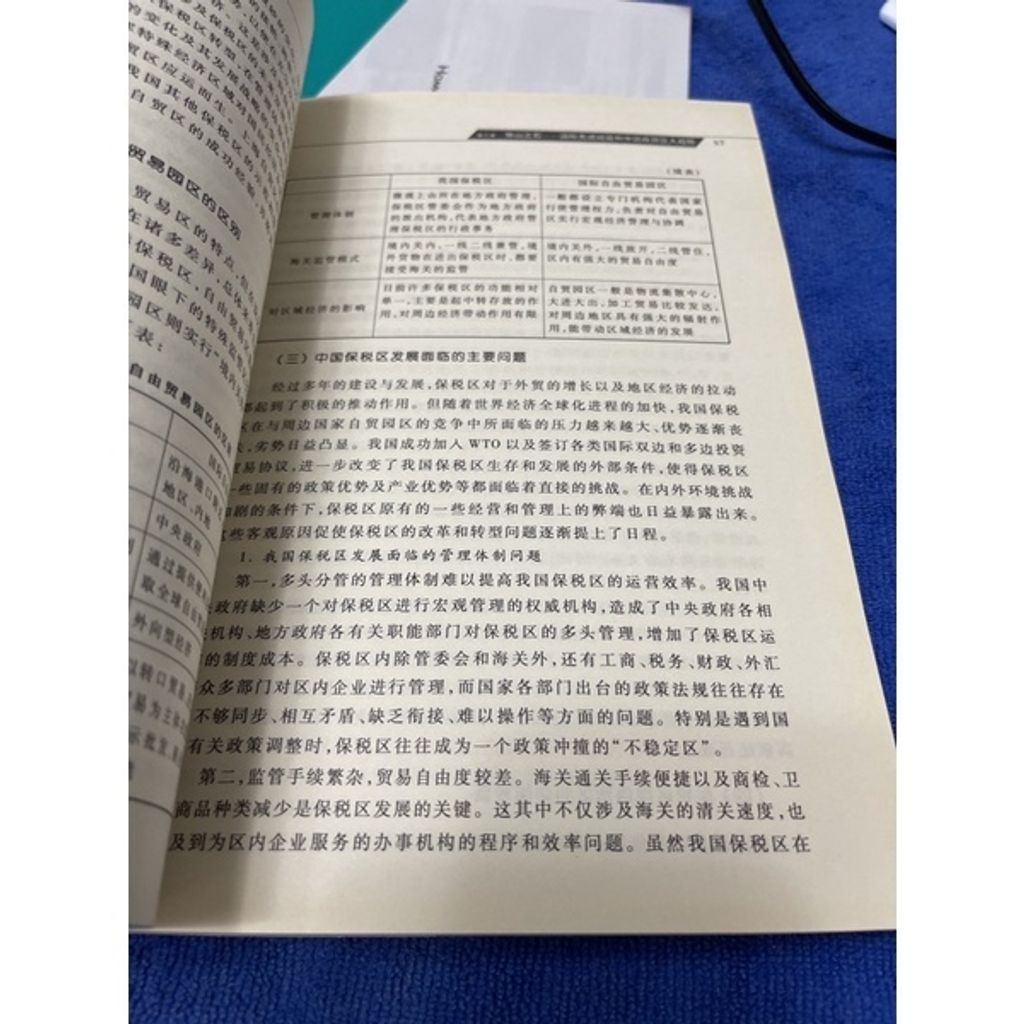 务,以便在
济。这是涉及
涉及保税区的未
保税区转型,在管
的变化及其发展战略的
家特殊经济区域对国民
贸区应运而生。上海
我国其他保税区的示
自贸区的成功经验,
贸易园区的区别
贸易区的特点,但
在诸多差异,总体来
保税区,自由贸易
国眼下的特殊监管
园区则实行"境内关
表:
自由贸易园区的区别
国际
沿海港口
地区、内地
中央政府
通过提供
取全球自由
外向型经济
以转口贸易
易为主
示批发、
57
(续表)
我国保税区
国际自由贸易园区
管理体制
微观上由所在地方政府管理,
保税区管委会作为地方政府
的派出机构,代表地方政府管
理保税区的行政事务
一般都设立专门机构代表国家
行使管理权力,负责对自由贸易
区实行宏观经济管理与协调
海关监管模式
境内关内,一线二线兼管,境
外货物在进出保税区时,都要
接受海关的监管
境内关外,一线放开,二线管住,
区内有强大的贸易自由度
对区域经济的影响
目前许多保税区的功能相对
单一,主要是起中转存放的作
用,对周边经济带动作用有限
自贸园区一般是物流集散中心,
大进大出,加工贸易比较发达,
对周边地区具有强大的辐射作
用,能带动区域经济的发展
(三)中国保税区发展面临的主要问题
经过多年的建设与发展,保税区对于外贸的增长以及地区经济的拉动
都起到了积极的推动作用。但随着世界经济全球化进程的加快,我国保税
区在与周边国家自贸园区的竞争中所面临的压力越来越大、优势逐渐丧
失,劣势日益凸显。我国成功加入 WTO 以及签订各类国际双边和多边投资
贸易协议,进一步改变了我国保税区生存和发展的外部条件,使得保税区
一些固有的政策优势及产业优势等都面临着直接的挑战。在内外环境挑战
加剧的条件下,保税区原有的一些经营和管理上的弊端也日益暴露出来。
这些客观原因促使保税区的改革和转型问题逐渐提上了日程。
1. 我国保税区发展面临的管理体制问题
第一,多头分管的管理体制难以提高我国保税区的运营效率。我国中
央政府缺少一个对保税区进行宏观管理的权威机构,造成了中央政府各相
关机构、地方政府各有关职能部门对保税区的多头管理,增加了保税区运
的制度成本。保税区内除管委会和海关外,还有工商、税务、财政、外汇
众多部门对区内企业进行管理,而国家各部门出台的政策法规往往存在
不够同步、相互矛盾、缺乏衔接、难以操作等方面的问题。特别是遇到国
有关政策调整时,保税区往往成为一个政策冲撞的"不稳定区"。
第二,监管手续繁杂,贸易自由度较差。海关通关手续便捷以及商检、卫
商品种类减少是保税区发展的关键。这其中不仅涉及海关的清关速度,也
及到为区内企业服务的办事机构的程序和效率问题。虽然我国保税区在